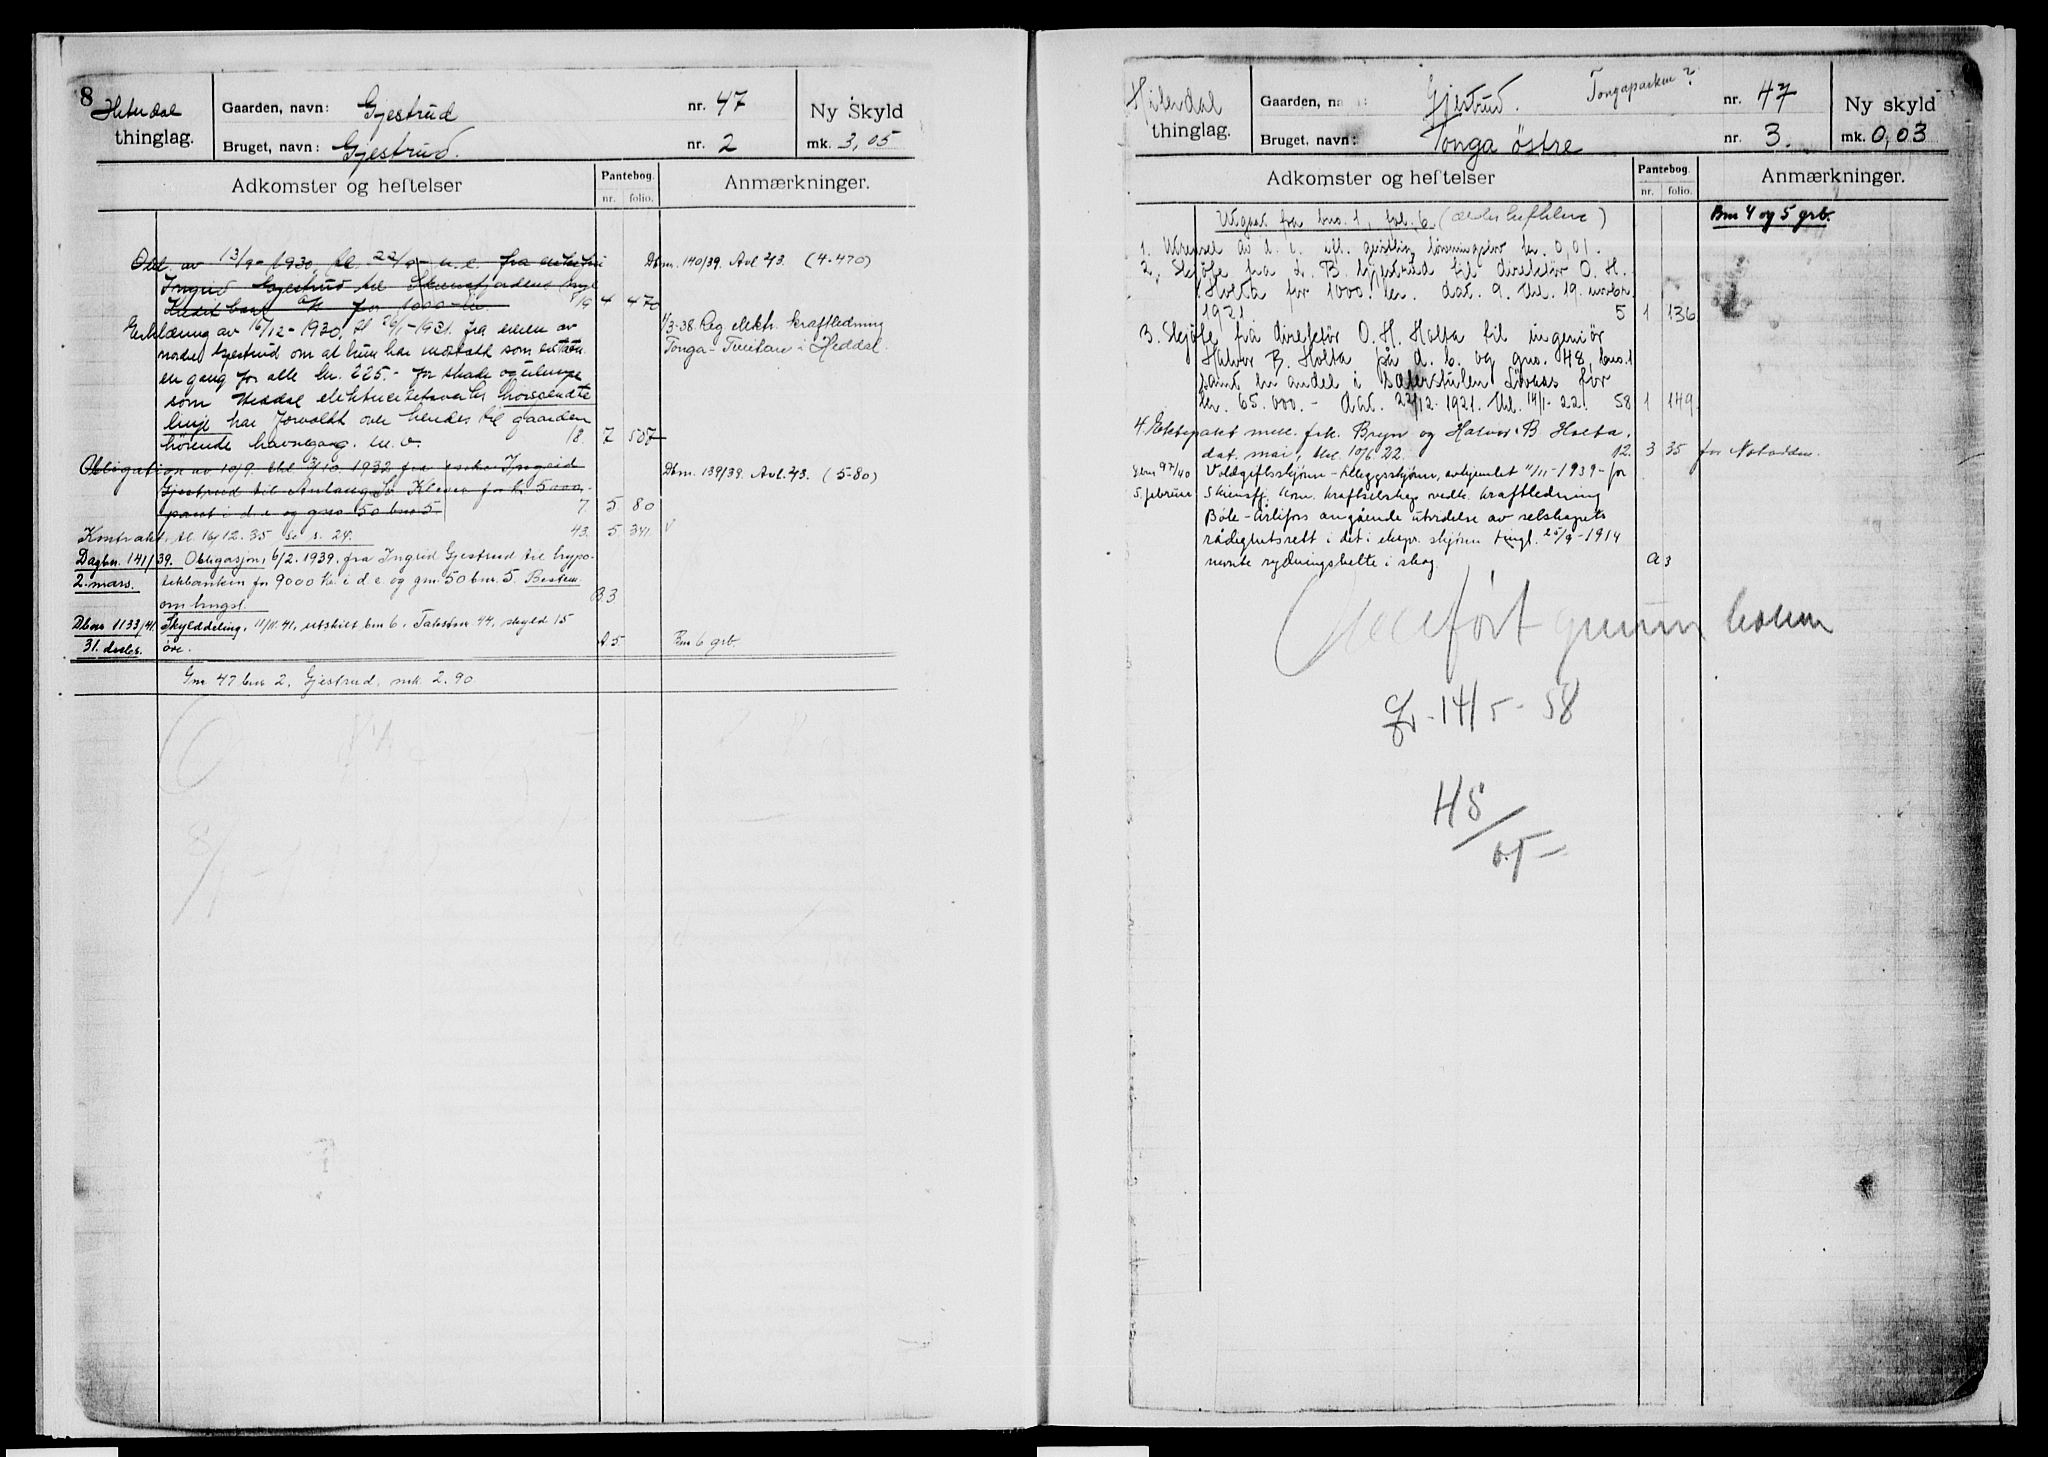 8
Hiterdal
thinglag.
Gaarden, navn: Gjestrud nr. 47
Bruget, navn: Gjestrud. nr. 2
Ny Skyld
mk. 3,05
Adkomster og heftelser
Pantebog.
nr. folio.
Anmærkninger.
Obl. av 13/9-1930, tl. 22/9 fra enke fru
Ingrid Gjestrud til Skiensfjordens
Kreditbank A/S for 1000 kr. 4 470
Dbm. 140/39. Avl 2/3. (4-470)
Erklæring av 16/12-1930, tl 26/1-1931 fra eieren av
Gjestrud om at hun har mottatt som
en gang for alle kr. 225.- for skade og ulempe
som Heddal elektricitetsverks høispendte
linje har forvoldt over hendes til gaarden
hørende havnegang. m. v. 18 7 507
1/3-38 Reg elektr. kraftledning
Tonga - Tveitan i Heddal.
Obligation av 10/9 tl 3/10 1932 fra enke Ingrid
Gjestrud til Aslaug Kleven for kr 5000.-
pant i d. e og gno 50 bno 5 7 5 80
Dbm. 139/39. Avl. 2/3. (5-80)
Kontrakt, tl. 16/12. 35 se s. 24. 43. 5 341 v
Dagbn. 141/39. Obligasjon, 6/2. 1939, fra Ingrid Gjestrud til hypo-
2. mars. tekbanken for 9000 kr. i d e og gnr. 50 bnr. 5. Bestem
om tvngsl. B 3.
Dbnr 1133/41. Skylddeling, 11/11. 41, utskilt bnr 6, Takstnr 44, skyld 15
31. desbr. øre. A 5. Bnr 6 grb.
Gnr 47 bnr 2, Gjestrud, mk. 2.90.
Hiterdal
thinglag.
Gaarden, navn: Gjestrud. Tongaparken? nr. 47
Bruget, navn: Tonga østre nr. 3.
Ny skyld
mk. 0,03
Adkomster og heftelser
Pantebog.
nr. folio.
Anmærkninger.
Utgaat fra bno. 1, fol. 6 (ældre heftelser)
Bnr 4 og 5 grb.
1. Utexpsel av d. e. kr. 0,01.
2. Skjøte fra L. B. Gjestrud til direktør O. H.
Holta for 1000 kr. dat. 9. tl. 19. novbr.
1921. 5 1 136
3. Skjøte fra direktør O. H. Holta til ingeniør
Halvor B. Holta på d. b. og gno. 48, bno. 1
samt en andel i for
kr. 65.000.- dat. 22/12. 1921. tl. 14/1. 22. 58 1 149
4. Ektepakt mell. frk. Bryn og Halvor B Holta,
dat. mai, tl. 10/6 22. 12. 3 35 for Notodden.
Dbnr 97/40 Voldgiftsskjønn - tilleggsskjønn, avhjemlet 11/11-1939 - for
5. februar Skiensfj. kom. kraftselskap vedk. kraftledning
Bøle - Årlifoss angående utvidelse av selskapets
rådighetsrett i det i ekspr. skjønn tingl. 25/9-1914
nevnte rydningsbelte i skog. A 3
Overført grunnboken
14/5-58